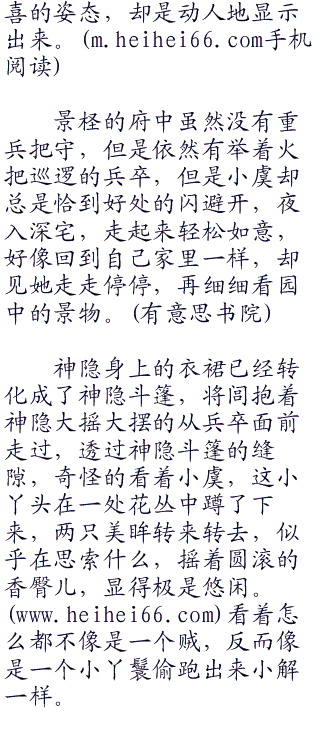 喜的姿态，却是动人地显示
出来。(m.heihei66.com手机
阅读)
景柽的府中虽然没有重
兵把守，但是依然有举着火
把巡逻的兵卒，但是小虞却
总是恰到好处的闪避开，夜
入深宅，走起来轻松如意，
好像回到自己家里一样，却
见她走走停停，再细细看园
中的景物。(有意思书院)
神隐身上的衣裙已经转
化成了神隐斗篷，将闾抱着
神隐大摇大摆的从兵卒面前
走过，透过神隐斗篷的缝
隙，奇怪的看着小虞，这小
丫头在一处花丛中蹲了下
来，两只美眸转来转去，似
乎在思索什么，摇着圆滚的
香臀儿，显得极是悠闲。
(www.heihei66.com)看着怎
么都不像是一个贼，反而像
是一个小丫鬟偷跑出来小解
一样。